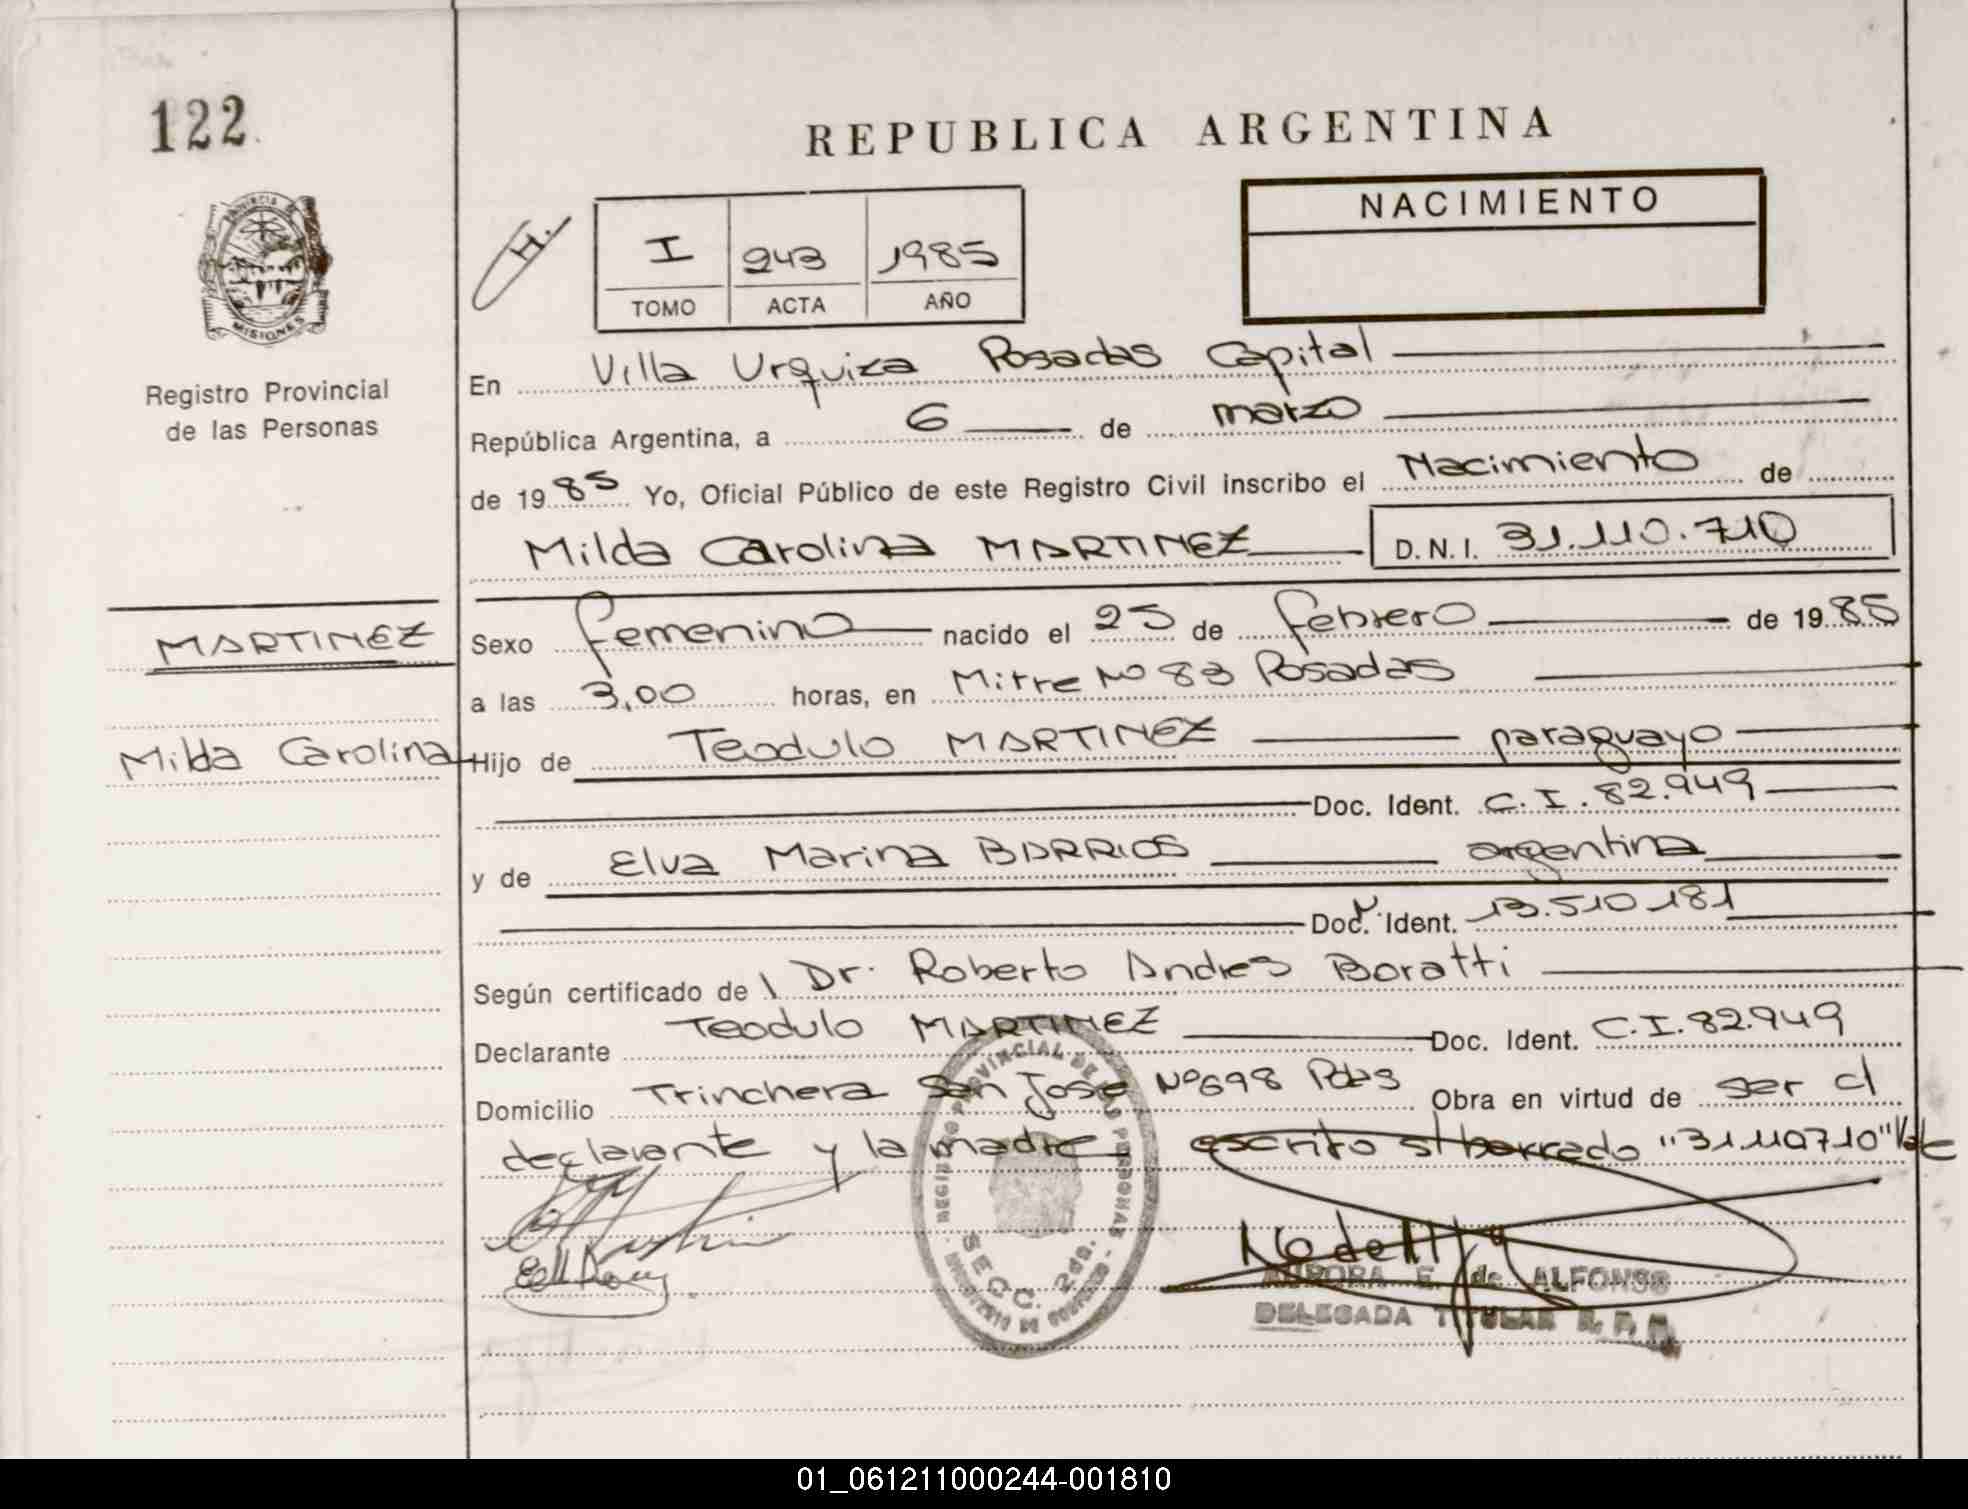 122
REPUBLICA ARGENTINA
PROVINCIA DE
MISIONES
Registro Provincial
de las Personas
H.
I 243 1985
TOMO ACTA AÑO
NACIMIENTO
En Villa Urquiza Posadas Capital
República Argentina, a 6 de marzo
de 1985 Yo, Oficial Público de este Registro Civil inscribo el Nacimiento de
Milda Carolina MARTINEZ D.N.I. 31.110.710
MARTINEZ
Milda Carolina
Sexo femenino nacido el 25 de febrero de 1985
a las 3,00 horas, en Mitre Nº 83 Posadas
Hijo de Teodulo MARTINEZ paraguayo
Doc. Ident. C.I. 82.949
y de Elva Marina BARRIOS argentina
Doc. Ident. 13.510.181
Según certificado de Dr. Roberto Andres Boratti
Declarante Teodulo MARTINEZ Doc. Ident. C.I. 82.949
Domicilio Trinchera San Jose Nº 698 Pdas Obra en virtud de ser el
declarante y la madre escrito s/ borrado "31110710" Vale
REGISTRO PROVINCIAL DE LAS PERSONAS
SECC. 2da.
AURORA E. de ALFONSO
DELEGADA TITULAR R. P. P.
01_061211000244-001810